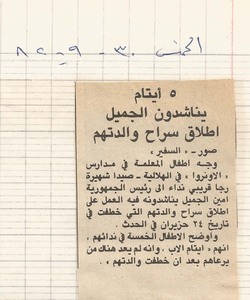 الخميس ٣٠ - ٩ - ٨٢
٥ أيتام
يناشدون الجميل
اطلاق سراح والدتهم
صور - « السفير »
وجه اطفال المعلمة في مدارس
« الاونروا » في الهلالية - صيدا شهيرة
رجا قريبي نداء الى رئيس الجمهورية
امين الجميل يناشدونه فيه العمل على
اطلاق سراح والدتهم التي خطفت في
تاريخ ٢٤ حزيران في الحدث .
واوضح الاطفال الخمسة في ندائهم ،
انهم « ايتام الاب . وانه لم يعد هناك من
يرعاهم بعد ان خطفت والدتهم » .